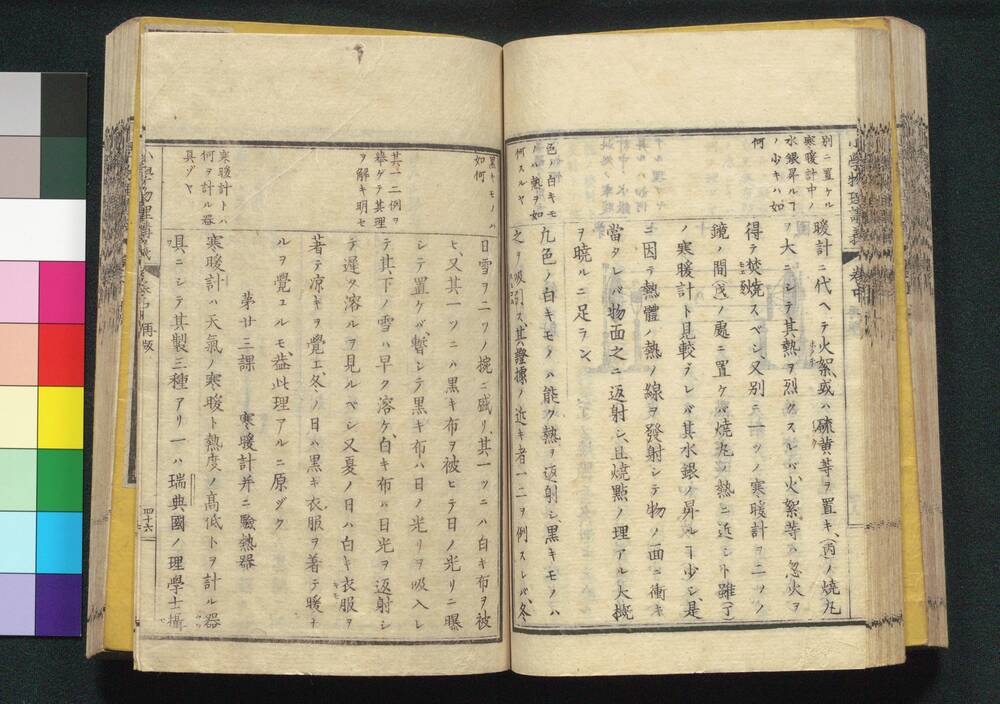 別ニ置ケル
寒暖計中ノ
水銀昇ル丁
ノ少キハ如
何
暖計ニ代ヘテ火絮或ハ硫黄等ヲ置キ、(丙)ノ燒丸
ヲ大ニシテ其熱ヲ烈クスレバ、火絮等ハ忽火ヲ
得テ焚燒スベシ、又別ニ一ツノ寒暖計ヲ二ツノ
鏡ノ間(戊)ノ處ニ置ケバ、燒丸ノ熱ニ近シト雖丁
ノ寒暖計ト見較テレバ其水銀ノ昇ル丁少シ、是
ニ因テ熱體ノ熱ノ線ヲ發射シテ物ノ面ニ衝キ
當タレバ物面之ニ返射シ、且燒點ノ理アル大槪
ヲ曉ルニ足ラン、
色ノ白キモ
ノハ熱ヲ如
何スルヤ
九色ノ白キモノハ能ク熱ヲ返射シ黒キモノハ
之ヲ吸引ス、其證據ノ近キ者一二ヲ例スレバ、冬
黒キモノハ
如何
日雪ヲ二ツノ椀ニ盛リ、其一ツニハ白キ布ヲ被
ヒ、又其一ツニハ黒キ布ヲ被ヒテ日ノ光リニ曝
シテ置ケバ、暫シテ黒キ布ハ日ノ光リヲ吸入レ
其一二例ヲ
擧ゲテ其理
ヲ解キ明セ
テ其下ノ雪ハ早ク溶ケ、白キ布ハ日光ヲ返射シ
テ遲ク溶ルヲ見ルベシ又夏ノ日ハ白キ衣服ヲ
著テ凉キヲ覺エ、冬ノ日ハ黒キ衣服ヲ著テ暖ナ
ルヲ覺ユルモ、益此理アルニ原ヅク
第廿三課 寒暖計并ニ驗熱器
寒暖計トハ
何ヲ計ル器
具ゾヤ
寒暖計ハ天氣ノ寒暖ト熱度ノ高低トヲ計ル器
具ニシテ其製三種アリ一ハ瑞典國ノ理學士攝
再版
四十六